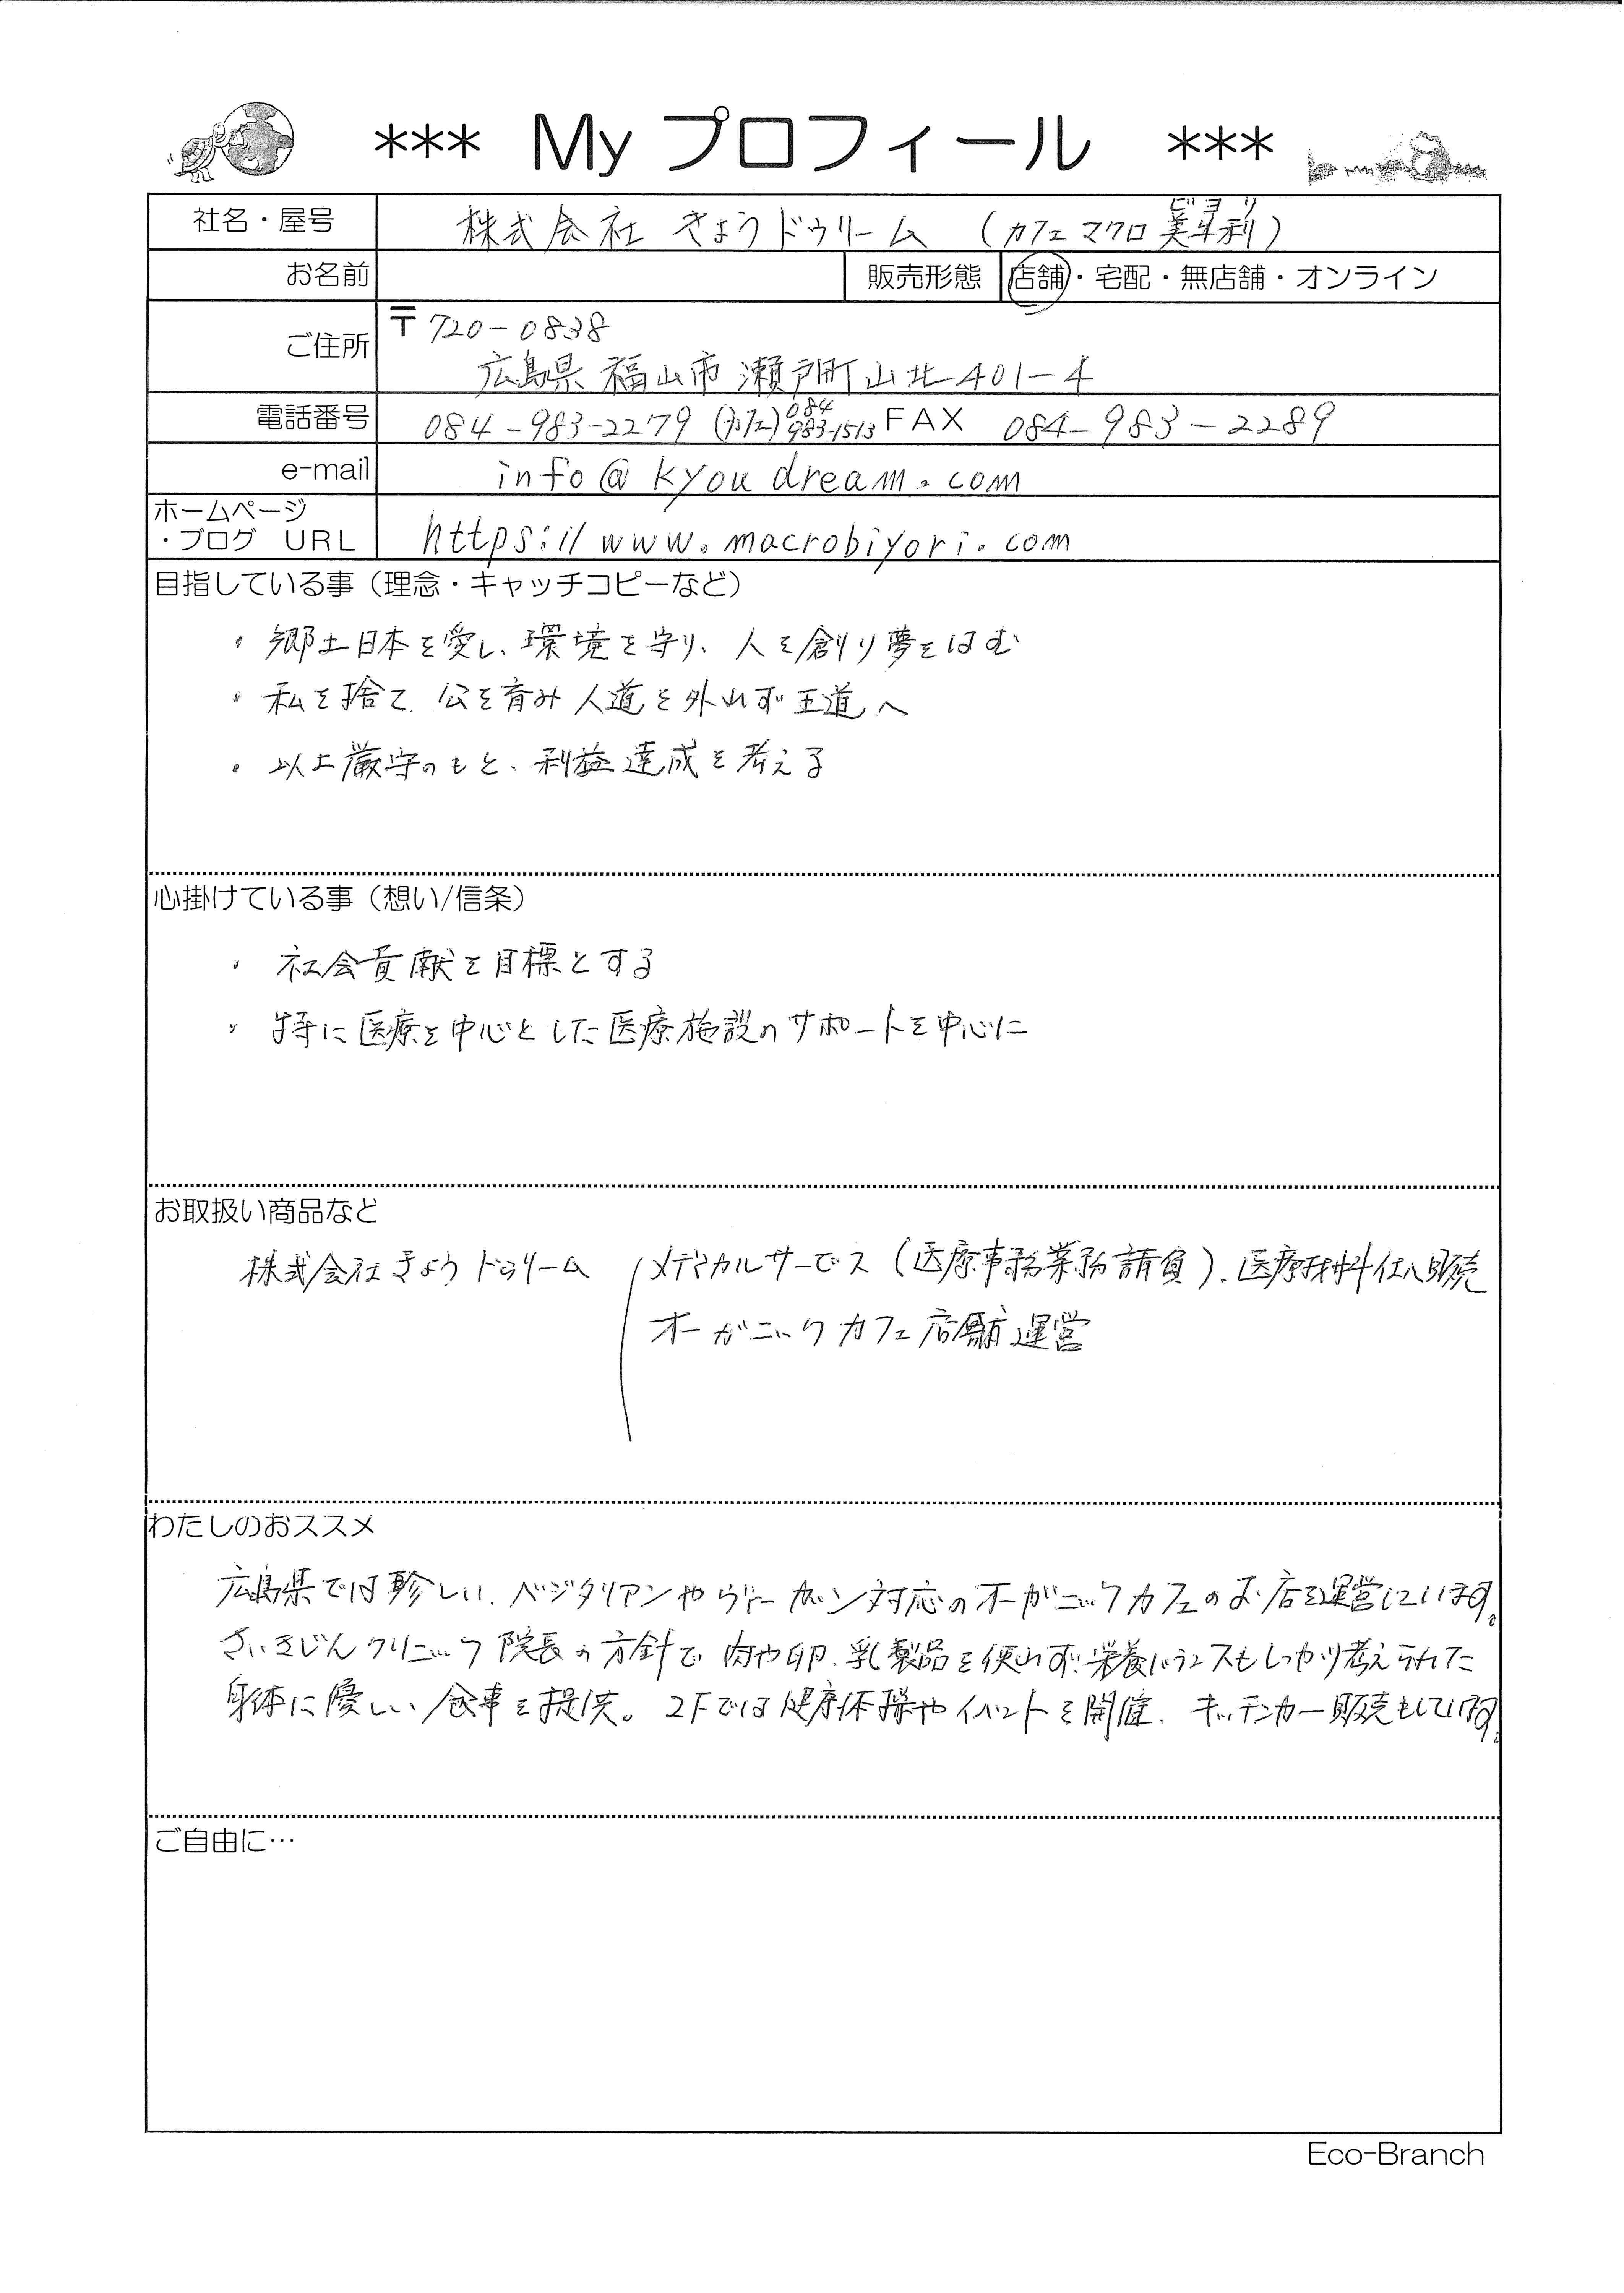 *** My プロフィール ***
社名・屋号 株式会社 きょうドゥリーム (カフェ マクロ 美利) ビヨリ
お名前 販売形態 店舗・宅配・無店舗・オンライン
ご住所 〒720-0838
広島県 福山市 瀬戸町山北401-4
電話番号 084-983-2279 (カフェ)084 983-1513 FAX 084-983-2289
e-mail info@kyoudream.com
ホームページ
・ブログ URL https://www.macrobiyori.com
目指している事(理念・キャッチコピーなど)
・郷土日本を愛し、環境を守り、人を創り夢をはむ
・私を捨て、公を育み人道を外れず王道へ
・以上厳守のもと、利益達成を考える
心掛けている事(想い/信条)
・社会貢献を目標とする
・特に医療を中心とした医療施設のサポートを中心に
お取扱い商品など
株式会社きょうドゥリーム メディカルサービス(医療事務業務請負)、医療材料仕入販売
オーガニックカフェ店舗運営
わたしのおススメ
広島県では珍しい、ベジタリアンやヴィーガン対応のオーガニックカフェのお店を運営しています。
さいきじんクリニック院長の方針で肉や卵、乳製品を使わず、栄養バランスもしっかり考えられた
身体に優しい食事を提供。2Fでは健康体操やイベントを開催、キッチンカー販売もしています。
ご自由に…
Eco-Branch